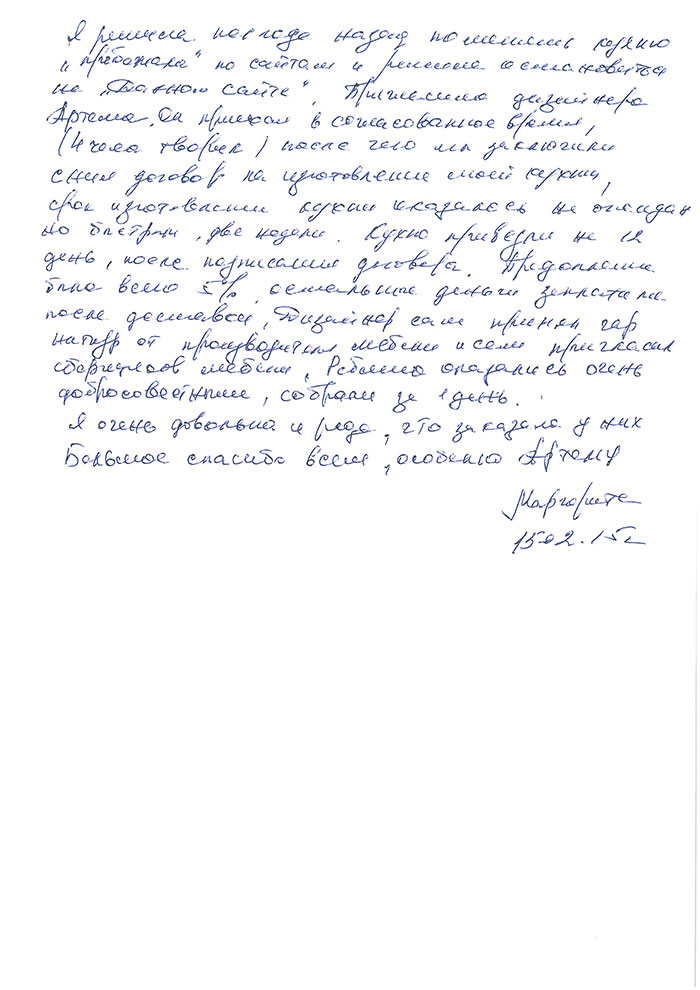 Я решила полгода назад поменять кухню
"пробежала" по сайтам и решила остановиться
на "Данном сайте". Пригласила дизайнера
Артема. Он приехал в согласованное время,
(4 часа творил) после чего мы заключили
с ним договор на изготовление моей кухни,
срок изготовления кухни оказалось не ожидан
но быстрый, две недели. Кухню привезли на 12
день, после подписания договора. Предоплата
была всего 5%, остальные деньги заплатила
после доставки, Дизайнер сам принял гар
нитур от производителя мебели и сам пригласил
сборщиков мебели, Ребята оказались очень
добросовестными, собрали за 1 день.
Я очень довольна и рада, что заказала у них
Большое спасибо всем, особенно Артему
Маргарита
15.02.15г